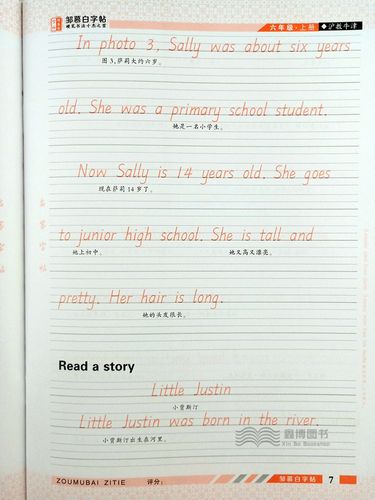 邹慕白字帖
硬笔书法十杰之首
六年级·上册 ◆沪教牛津
In photo 3, Sally was about six years
图3,萨莉大约六岁。
old. She was a primary school student.
她是一名小学生。
Now Sally is 14 years old. She goes
现在萨莉14岁了。
to junior high school. She is tall and
她上初中。 她又高又漂亮。
pretty. Her hair is long.
她的头发很长。
Read a story
Little Justin
小贾斯汀
Little Justin was born in the river.
小贾斯汀出生在河里。
鑫博图书
Xin Bo Bookstore
ZOUMUBAI ZITIE 评分: 邹慕白字帖 7